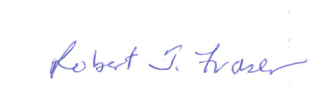 Robert J. Fraser